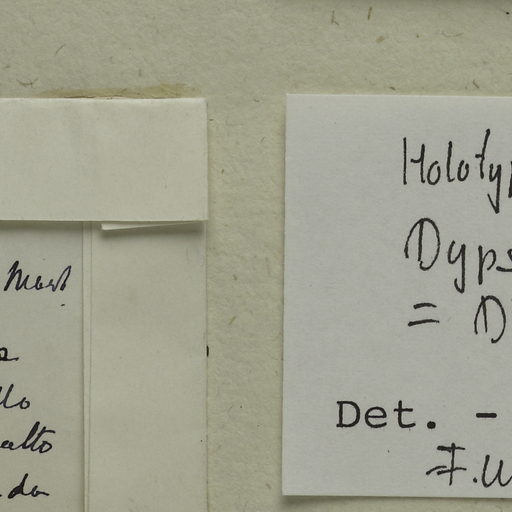 Mart
llo
alto
da
Holotyp
Dyps
= D
Det. -
F.W